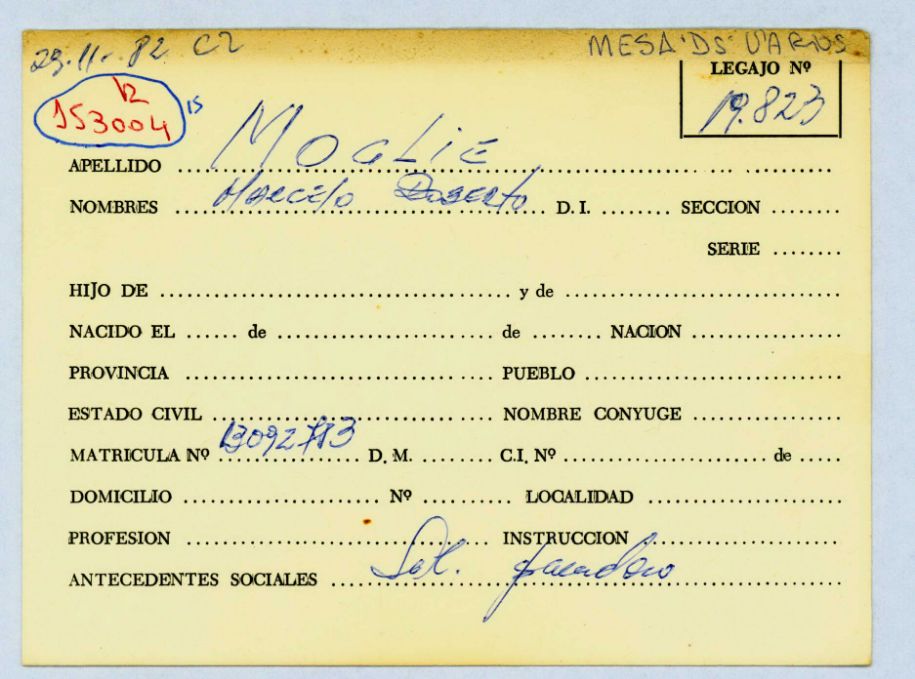 29-11-82 C2 MESA "DS" VARIOS
LEGAJO Nº
12
153004 15
19.823
APELLIDO MOGLIE
NOMBRES Marcelo Roberto D.I. SECCION
SERIE
HIJO DE y de
NACIDO EL de de NACION
PROVINCIA PUEBLO
ESTADO CIVIL NOMBRE CONYUGE
MATRICULA Nº D.M. C.I. Nº de
DOMICILIO Nº LOCALIDAD
PROFESION INSTRUCCION
ANTECEDENTES SOCIALES Sol. paradero